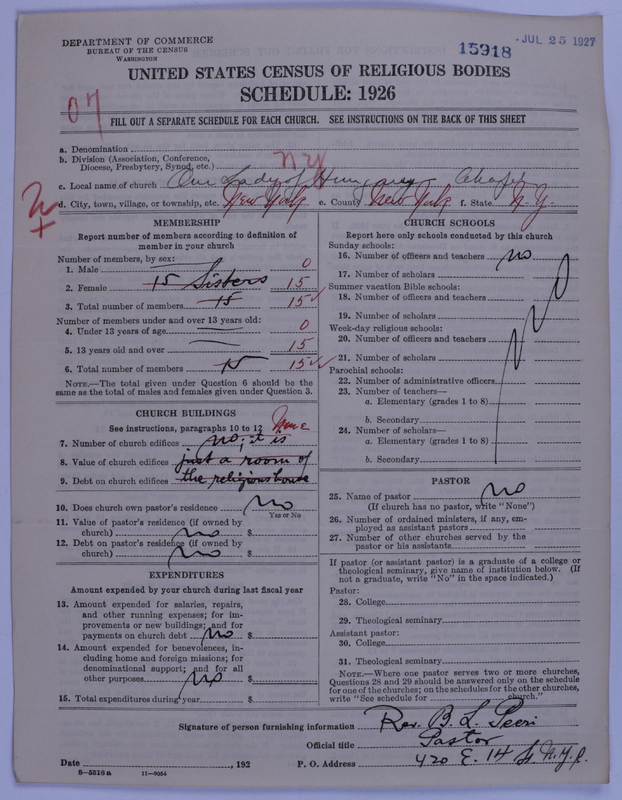 DEPARTMENT OF COMMERCE
BUREAU OF THE CENSUS
WASHINGTON
15918
JUL 25 1927
UNITED STATES CENSUS OF RELIGIOUS BODIES
SCHEDULE: 1926
07
FILL OUT A SEPARATE SCHEDULE FOR EACH CHURCH. SEE INSTRUCTIONS ON THE BACK OF THIS SHEET
a. Denomination
b. Division (Association, Conference,
Diocese, Presbytery, Synod, etc.) NY
c. Local name of church Our Lady of Hungary Chapel
d. City, town, village, or township, etc. New York e. County New York f. State N.Y.
MEMBERSHIP
Report number of members according to definition of
member in your church
Number of members, by sex:
1. Male 0
2. Female 15 Sisters 15
3. Total number of members 15 15
Number of members under and over 13 years old:
4. Under 13 years of age 0
5. 13 years old and over 15
6. Total number of members 15 15
NOTE.—The total given under Question 6 should be the
same as the total of males and females given under Question 3.
CHURCH BUILDINGS
See instructions, paragraphs 10 to 12 None
7. Number of church edifices no; it is
8. Value of church edifices just a room of
9. Debt on church edifices the religious house
10. Does church own pastor's residence No
Yes or No
11. Value of pastor's residence (if owned by
church) No $
12. Debt on pastor's residence (if owned by
church) No $
EXPENDITURES
Amount expended by your church during last fiscal year
13. Amount expended for salaries, repairs,
and other running expenses; for im-
provements or new buildings; and for
payments on church debt No $
14. Amount expended for benevolences, in-
cluding home and foreign missions; for
denominational support; and for all
other purposes No $
15. Total expenditures during year $
CHURCH SCHOOLS
Report here only schools conducted by this church
Sunday schools:
16. Number of officers and teachers no
17. Number of scholars
Summer vacation Bible schools:
18. Number of officers and teachers
19. Number of scholars
Week-day religious schools:
20. Number of officers and teachers
21. Number of scholars
Parochial schools:
22. Number of administrative officers
23. Number of teachers—
a. Elementary (grades 1 to 8)
b. Secondary
24. Number of scholars—
a. Elementary (grades 1 to 8)
b. Secondary
PASTOR
25. Name of pastor No
(If church has no pastor, write "None")
26. Number of ordained ministers, if any, em-
ployed as assistant pastors
27. Number of other churches served by the
pastor or his assistants
If pastor (or assistant pastor) is a graduate of a college or
theological seminary, give name of institution below. (If
not a graduate, write "No" in the space indicated.)
Pastor:
28. College
29. Theological seminary
Assistant pastor:
30. College
31. Theological seminary
NOTE.—Where one pastor serves two or more churches,
Questions 28 and 29 should be answered only on the schedule
for one of the churches; on the schedules for the other churches,
write "See schedule for church."
Signature of person furnishing information Rev. B. L.
Official title Pastor
Date , 192 P. O. Address 420 E. 14 St. N.Y.C.
8-5518a 11-9054